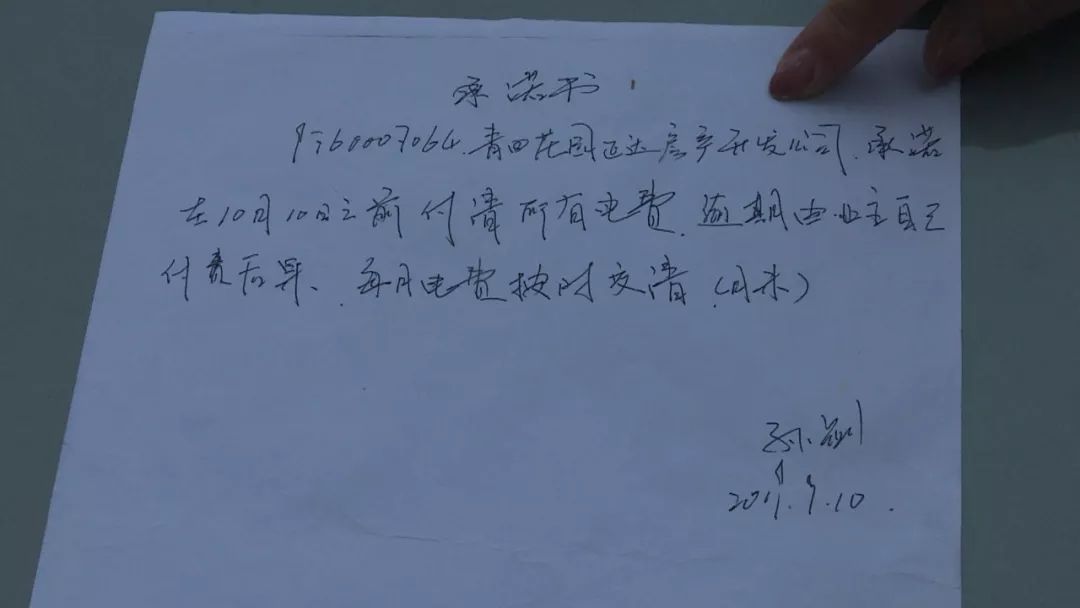 承诺书
户号60007064.青田花园迈达房产开发公司.承诺
在10月10日之前付清所有电费.逾期由业主自己
付责后果、每月电费按时交清(月末)
孙
2019.9.10.